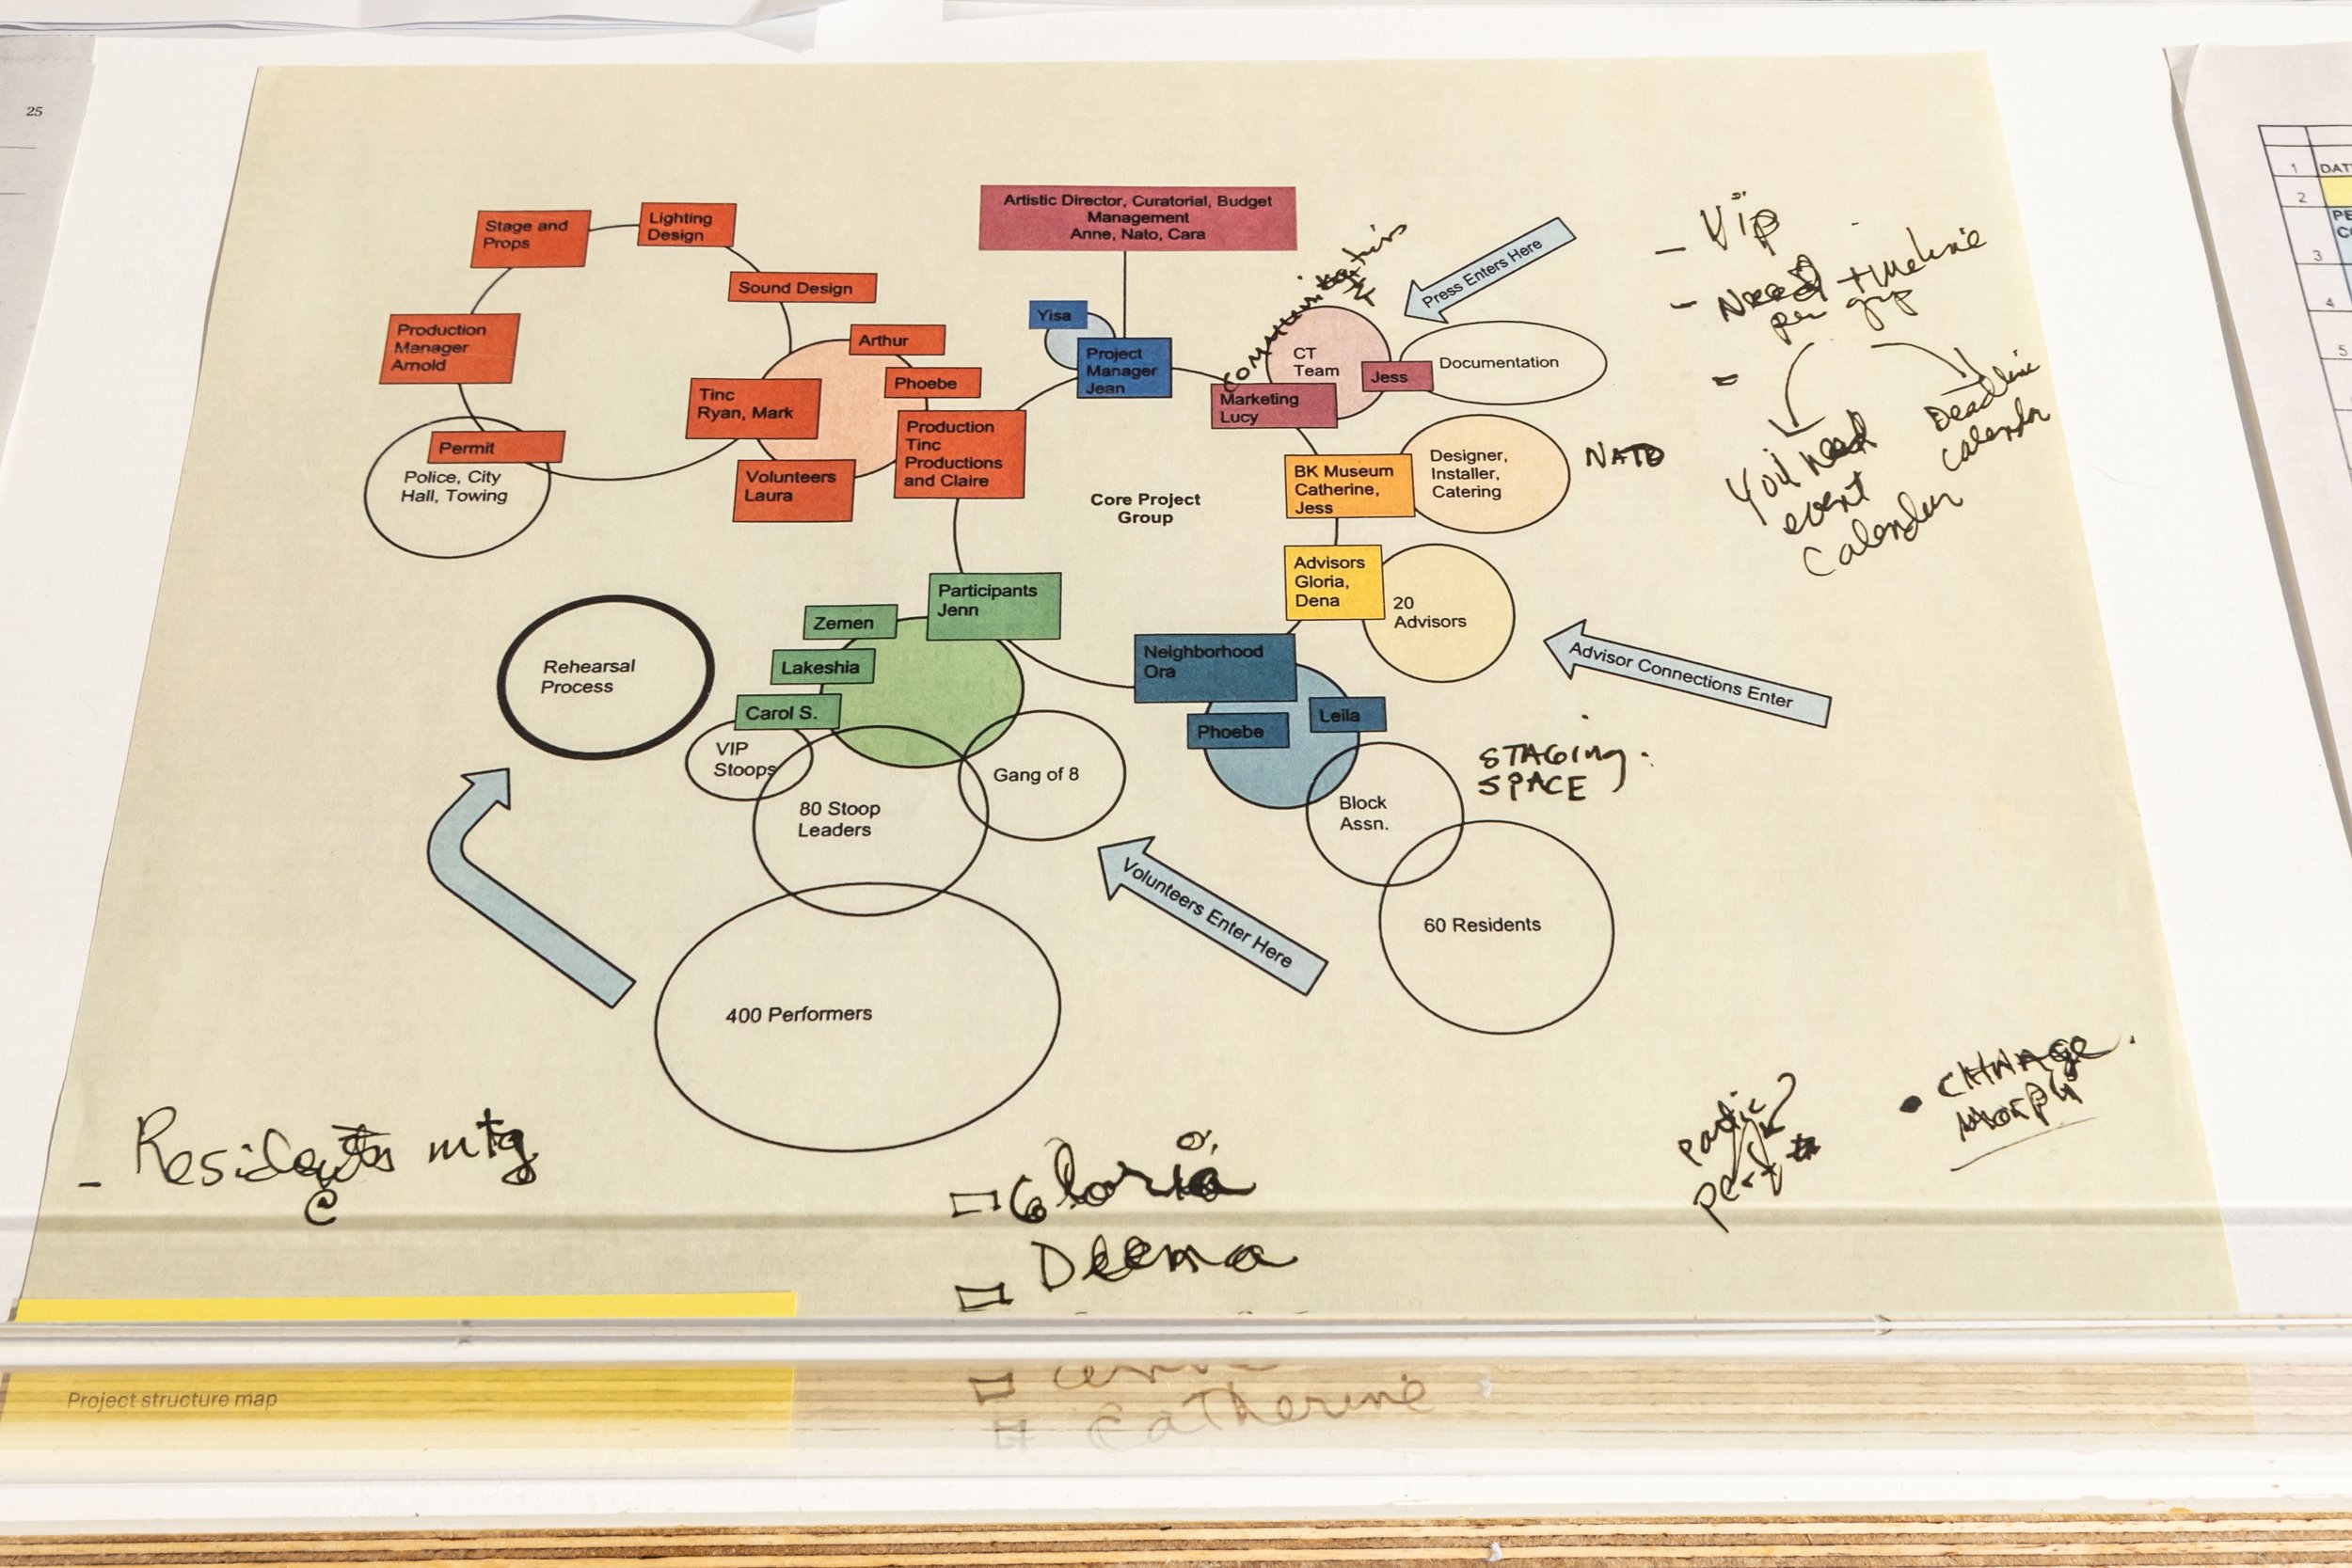 25
Artistic Director, Curatorial, Budget
Management
Anne, Nato, Cara
Stage and
Props
Lighting
Design
Sound Design
Production
Manager
Arnold
Permit
Police, City
Hall, Towing
Tinc
Ryan, Mark
Arthur
Phoebe
Production
Tinc
Productions
and Claire
Volunteers
Laura
Yisa
Project
Manager
Jean
Core Project
Group
CT
Team
Marketing
Lucy
Jess
Documentation
Press Enters Here
BK Museum
Catherine,
Jess
Designer,
Installer,
Catering
NATO
Advisors
Gloria,
Dena
20
Advisors
Advisor Connections Enter
- Vip
- Need timeline
per grp
-
You need
event
Calendar
Deadline
calendar
Participants
Jenn
Zemen
Lakeshia
Carol S.
VIP
Stoops
80 Stoop
Leaders
Gang of 8
400 Performers
Rehearsal
Process
Neighborhood
Ora
Phoebe
Leila
Block
Assn.
60 Residents
STAGING
SPACE
Volunteers Enter Here
- Residents mtg
Gloria
Deena
Catherine
• CHANGE
Morph
Project structure map
1
2
3
4
5